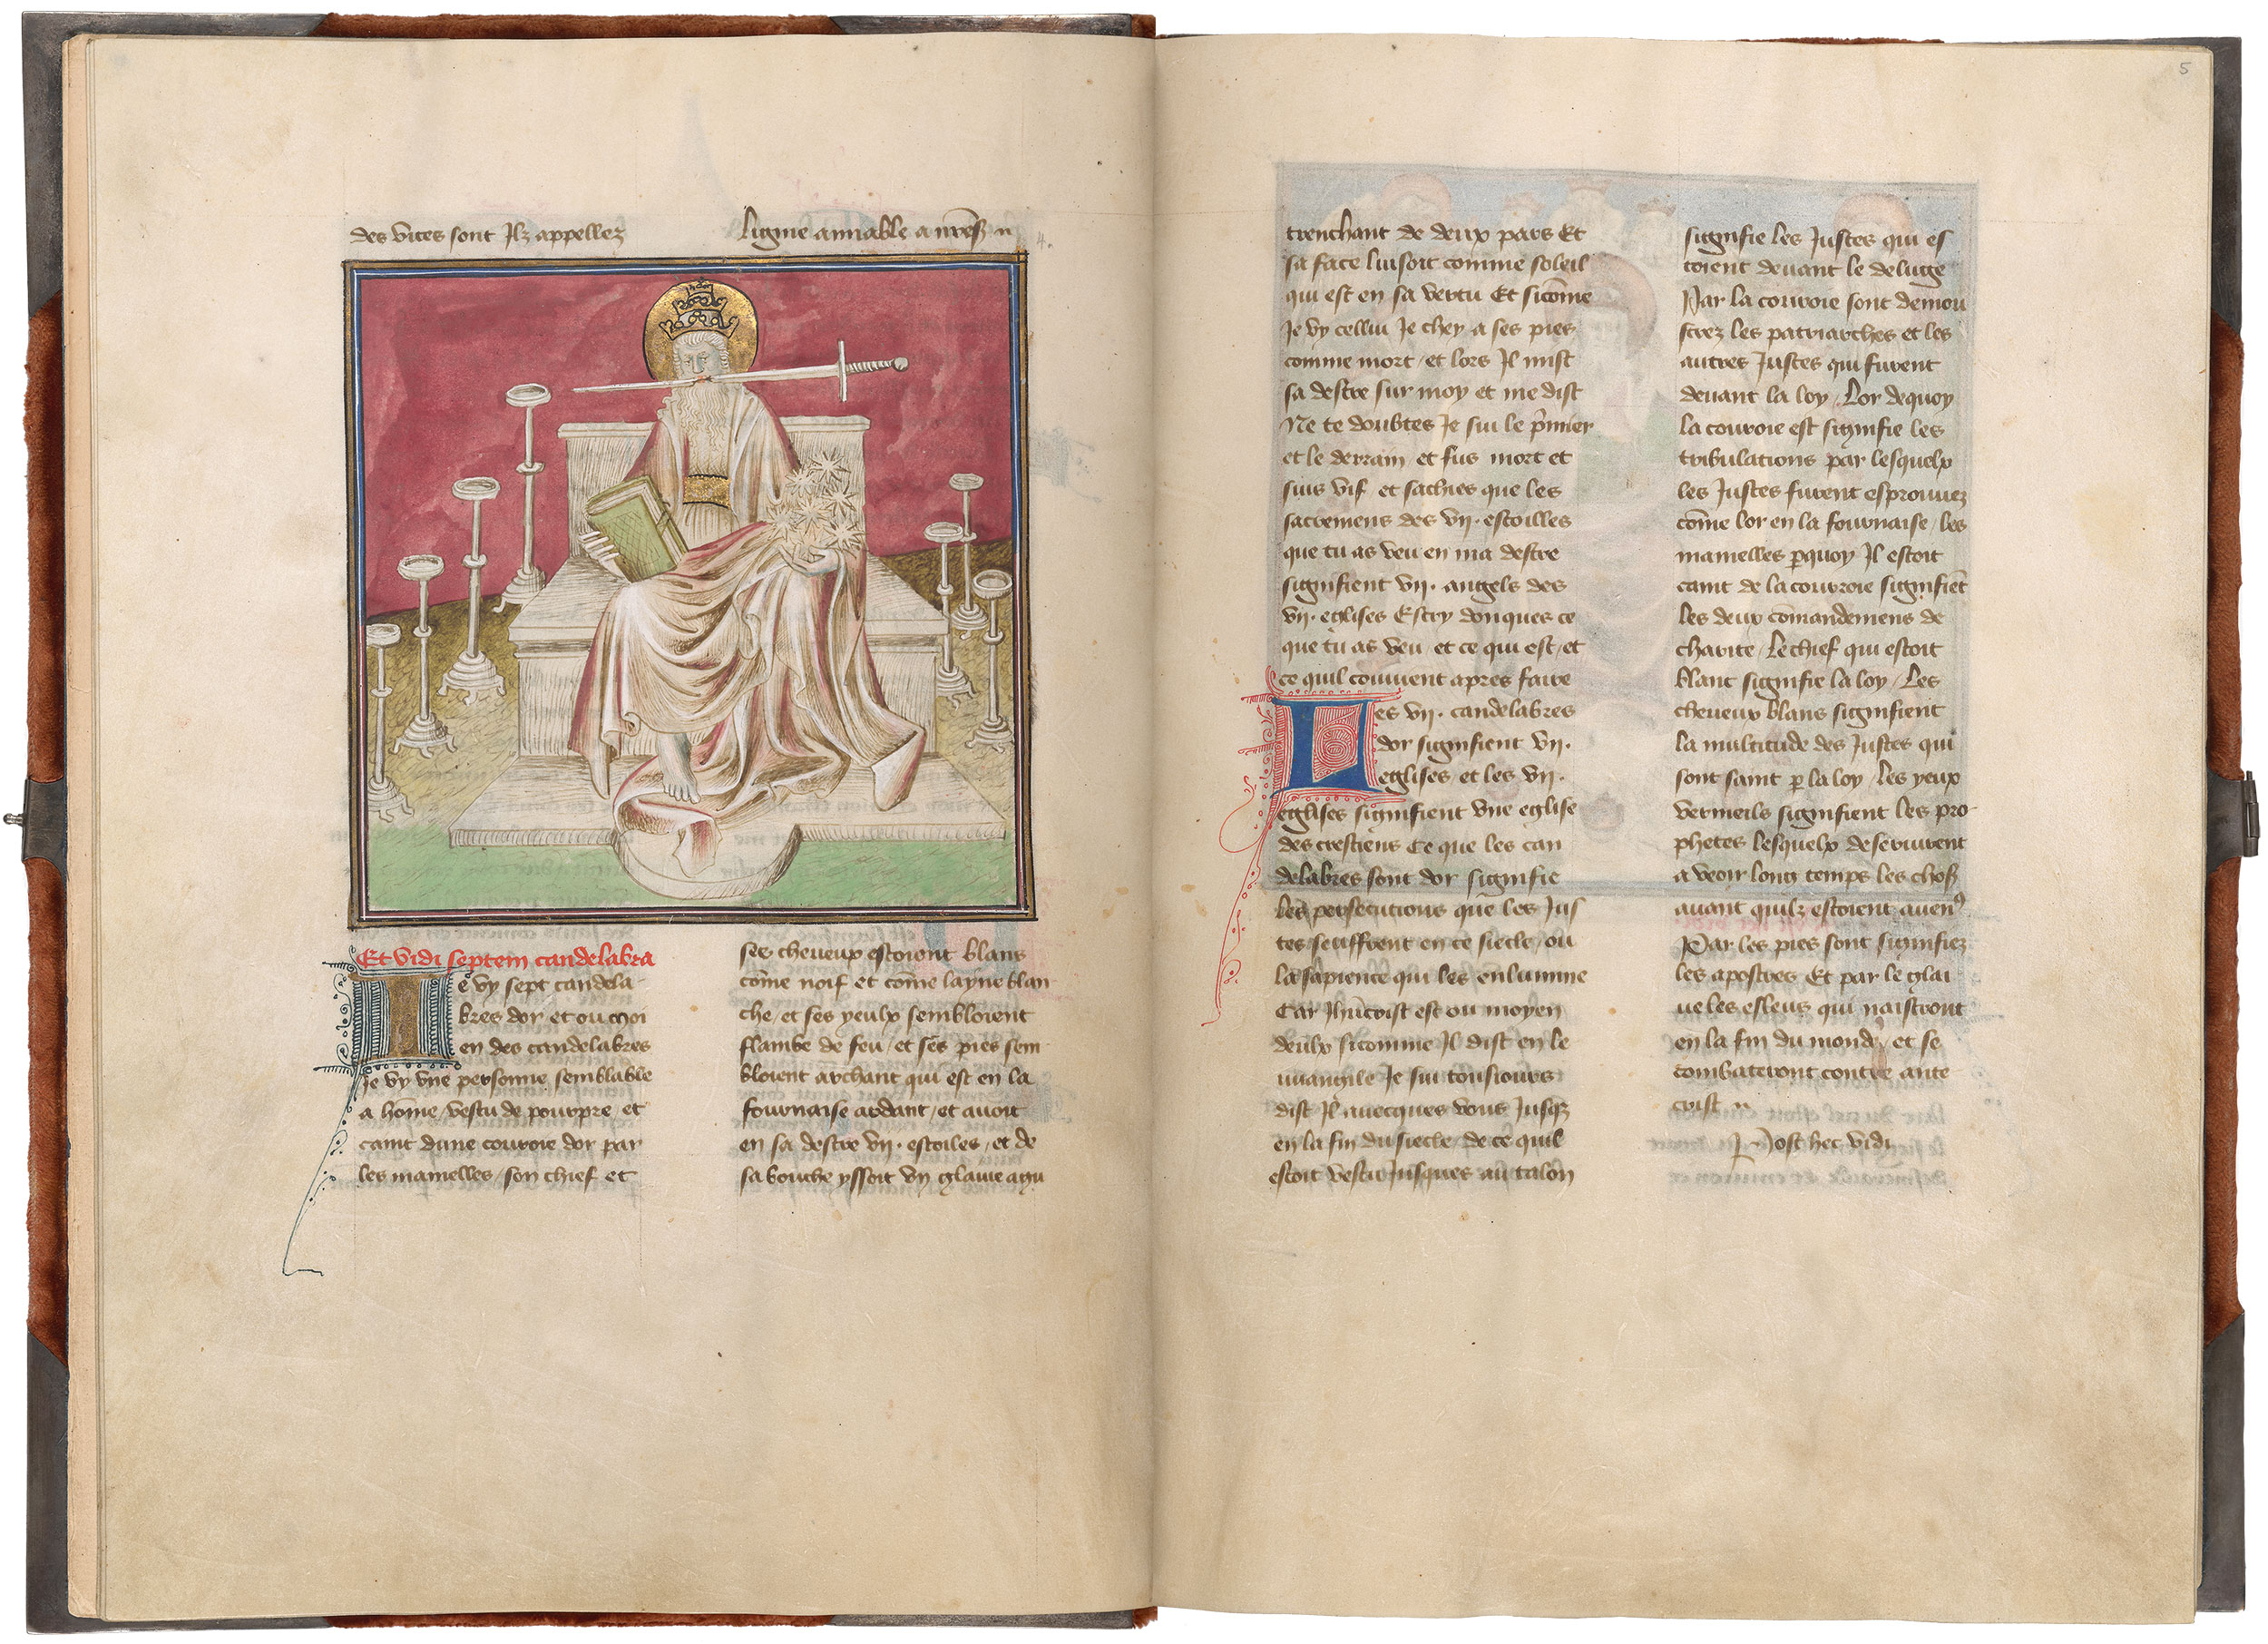 des vices sont Ilz appellez
ligne amiable a
4.
Et vidi septem candelabra
Ie vy sept candela
bres dor et ou moi
en des candelabres
Je vy vne personne semblable
a hōme vestu de pourpre et
caint dune couroie dor par
les mamelles son chief et
ses cheueux estoient blans
cōme noif et cōme layne blan
che et ses yeulx sembloient
flambe de feu et ses pies sem
bloient archant qui est en la
fournaise ardant et auoit
en sa destre vij. estoiles et de
sa bouche yssoit vn glaiue agu
5
trenchant de deux pars Et
sa face luisoit comme soleil
qui est en sa vertu Et sicōme
Je vy cellui Je chey a ses pies
comme mort et lors Il mist
sa destre sur moy et me dist
Ne te doubtes Je sui le p̄mier
et le derrain et fus mort et
suis vif et sachies que les
sacremens des vij. estoilles
que tu as veu en ma destre
signifient vij. angels des
vij. eglises Escry donques ce
que tu as veu et ce qui est et
ce quil conuient apres faire
Les vij. candelabres
dor signifient vij.
eglises et les vij.
eglises signifient vne eglise
des crestiens Ce que les can
delabres sont dor signifie
les persecutions que les Jus
tes seuffrent en ce siecle ou
la sapience qui les enlumine
Car Jhūcrist est ou moyen
deulx sicomme Il dist en le
uuangile Je sui tousiours
dist Il auecques vous Jusq3
en la fin du siecle de ce quil
estoit vestu Jusques au talon
signifie les Justes qui es
toient deuant le deluge
Par la couroie sont demou
strez les patriarches et les
autres Justes qui furent
deuant la loy Lor dequoy
la couroie est signifie les
tribulations par lesquelx
les Justes furent esprouuez
cōme lor en la fournaise les
mamelles p̄quoy Il estoit
caint de la couroie signifiēt
les deux cōmandemens de
charite Le chief qui estoit
blanc signifie la loy Les
cheueux blans signifient
la multitude des Justes qui
sont saint p̄ la loy Les yeux
vermeils signifient les pro
phetes lesquelx deseruirent
a veoir long temps les chos
auant quilz estoient auen9
Par les pies sont signifiez
les apostres Et par le glai
ue les esleus qui naistront
en la fin du monde et se
combateront contre ante
crist
Post hec vidi